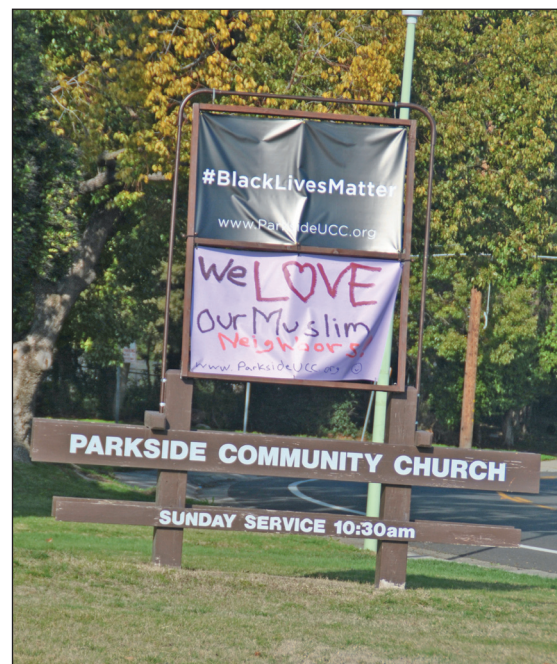 #BlackLivesMatter
www.ParksideUCC.org
We LOVE
Our Muslim
Neighbors!
www.ParksideUCC.org ☺
PARKSIDE COMMUNITY CHURCH
SUNDAY SERVICE 10:30am